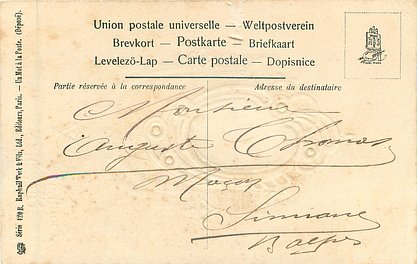 Union postale universelle — Weltpostverein
Brevkort — Postkarte — Briefkaart
Levelezö-Lap — Carte postale — Dopisnice
Partie réservée à la correspondance
Adresse du destinataire
Monsieur
Auguste Thomas
Simiane
B alpes
Série 129 B. Raphaël Tuck & Fils, Ltd., Editeurs, Paris. — Un Mot à la Poste. (Déposé).